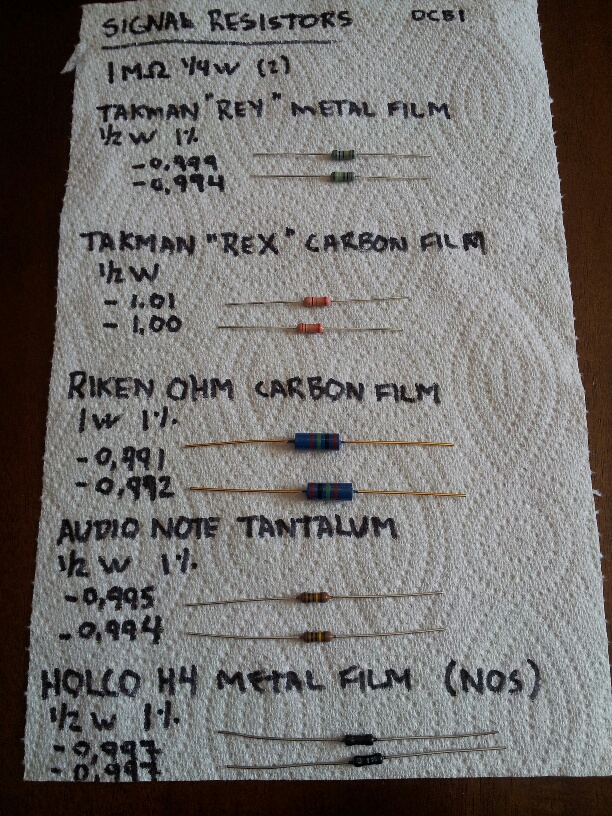 SIGNAL RESISTORS DCB1
1MΩ 1/4W (2)
TAKMAN "REY" METAL FILM
1/2 W 1%
-0.999
-0.994
TAKMAN "REX" CARBON FILM
1/2 W
- 1.01
- 1.00
RIKEN OHM CARBON FILM
1W 1%
-0,991
-0,992
AUDIO NOTE TANTALUM
1/2 W 1%
-0,995
-0,994
HOLCO H4 METAL FILM (NOS)
1/2 W 1%
-0,997
-0,997